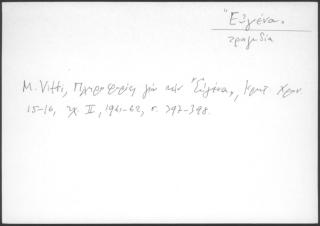 "Εὐγένα„
τραγωδία
M. Vitti, Πληροφορίες γιὰ τὴν "Εὐγένα„, Κρητ. Χρον.
15-16, τχ. II, 1961-62, σ. 397-398.